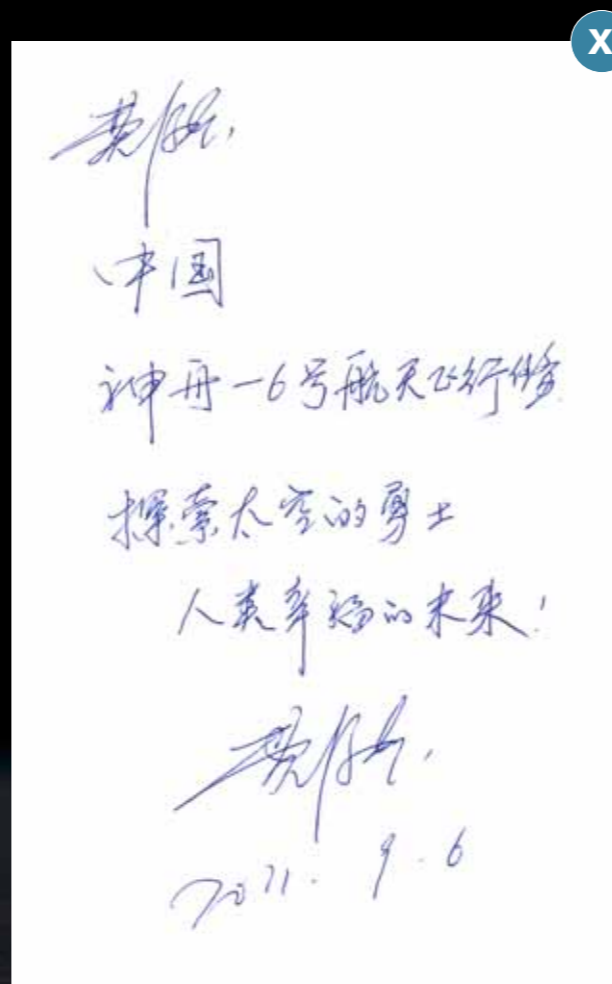 X
费俊龙.
中国
神舟-6号航天飞行任务
探索太空的勇士
人类幸福的未来!
费俊龙.
2011. 9.6